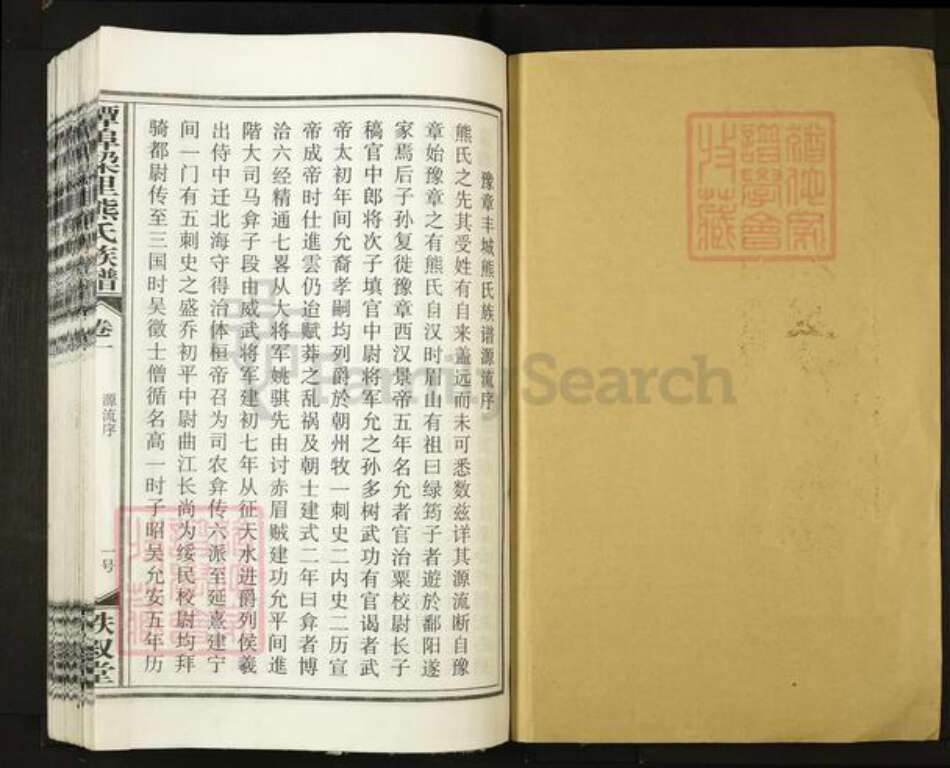 豫章丰城熊氏族谱源流序
熊氏之先其受姓有自来盖远而未可悉数兹详其源流断自豫
章始豫章之有熊氏自汉时眉山有祖曰绿筠子者遊於鄱阳遂
家焉后子孙复徙豫章西汉景帝五年名允者官治粟校尉长子
稿官中郎将次子填官中尉将军允之孙多树武功有官谒者武
帝太初年间允裔孝嗣均列爵於朝州牧一刺史二内史二历宣
帝成帝时仕進雲仍迨赋莽之乱祸及朝士建式二年曰弇者博
洽六经精通七畧从大将军姚骐先由讨赤眉贼建功允平间進
階大司马弇子段由威武将军建初七年从征天水进爵列侯羲
出侍中迁北海守得治体桓帝召为司农弇传六派至延熹建宁
间一门有五刺史之盛乔初平中尉曲江长尚为绥民校尉均拜
骑都尉传至三国时吴徵士僧循名高一时子昭吴允安五年历
潭埠梁里熊氏族谱
卷一
源流序
一号
秩叙堂
道德家
譜學會
收藏
FamilySearch